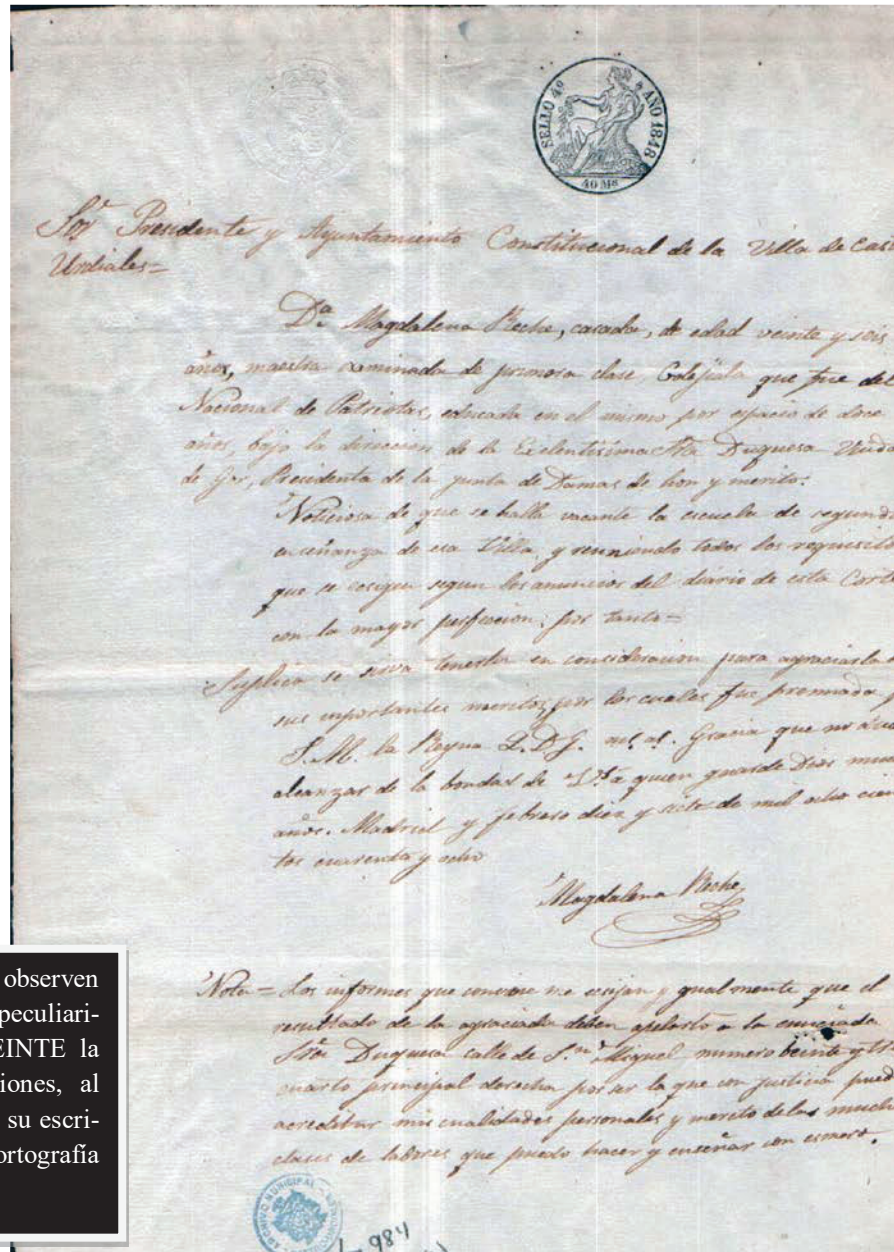 SELLO 4º AÑO 1848
40 Ms
Sor Presidente y Ayuntamiento Constitucional de la Villa de Cast
Urdiales=
Da. Magdalena Reche, casada, de edad veinte y seis
años, maestra de primera clase, Colejiala que fue del
Nacional de Patriotas, educada en el mismo por espacio de doce
años, bajo la direccion de la Duquesa Viuda
de Gor, Presidenta de la junta de Damas de hon y merito.
Noticiosa de que se halla vacante la escuela de segunda
enseñanza de esa Villa, y reuniendo todos los requisitos
que se segun los anuncios del diario de esta Corte
con la mayor por tanto=
Suplica se sirva tenerla en consideracion para agraciarla
sus meritos, por los cuales fue premiada p
S. M. la Reyna Q.D.G. Gracia que no
alcanzar de la bondad de a quien guarde Dios muc
años. Madrid y febrero diez y siete de mil ocho cien
tos cuarenta y ocho
Magdalena Reche
Nota= Los informes que me y gualmente que el
resultado de la agraciada deben a la
Sra Duquesa calle de S.n Miguel numero beinte y tre
cuarto principal derecha por ser la que con justicia pued
acreditar mis cualidades personales y merito de las mucha
clases de labores que puedo hacer y enseñar con esmero.
observen
peculiari-
EINTE la
iones, al
su escri-
ortografía
ARCHIVO MUNICIPAL
984